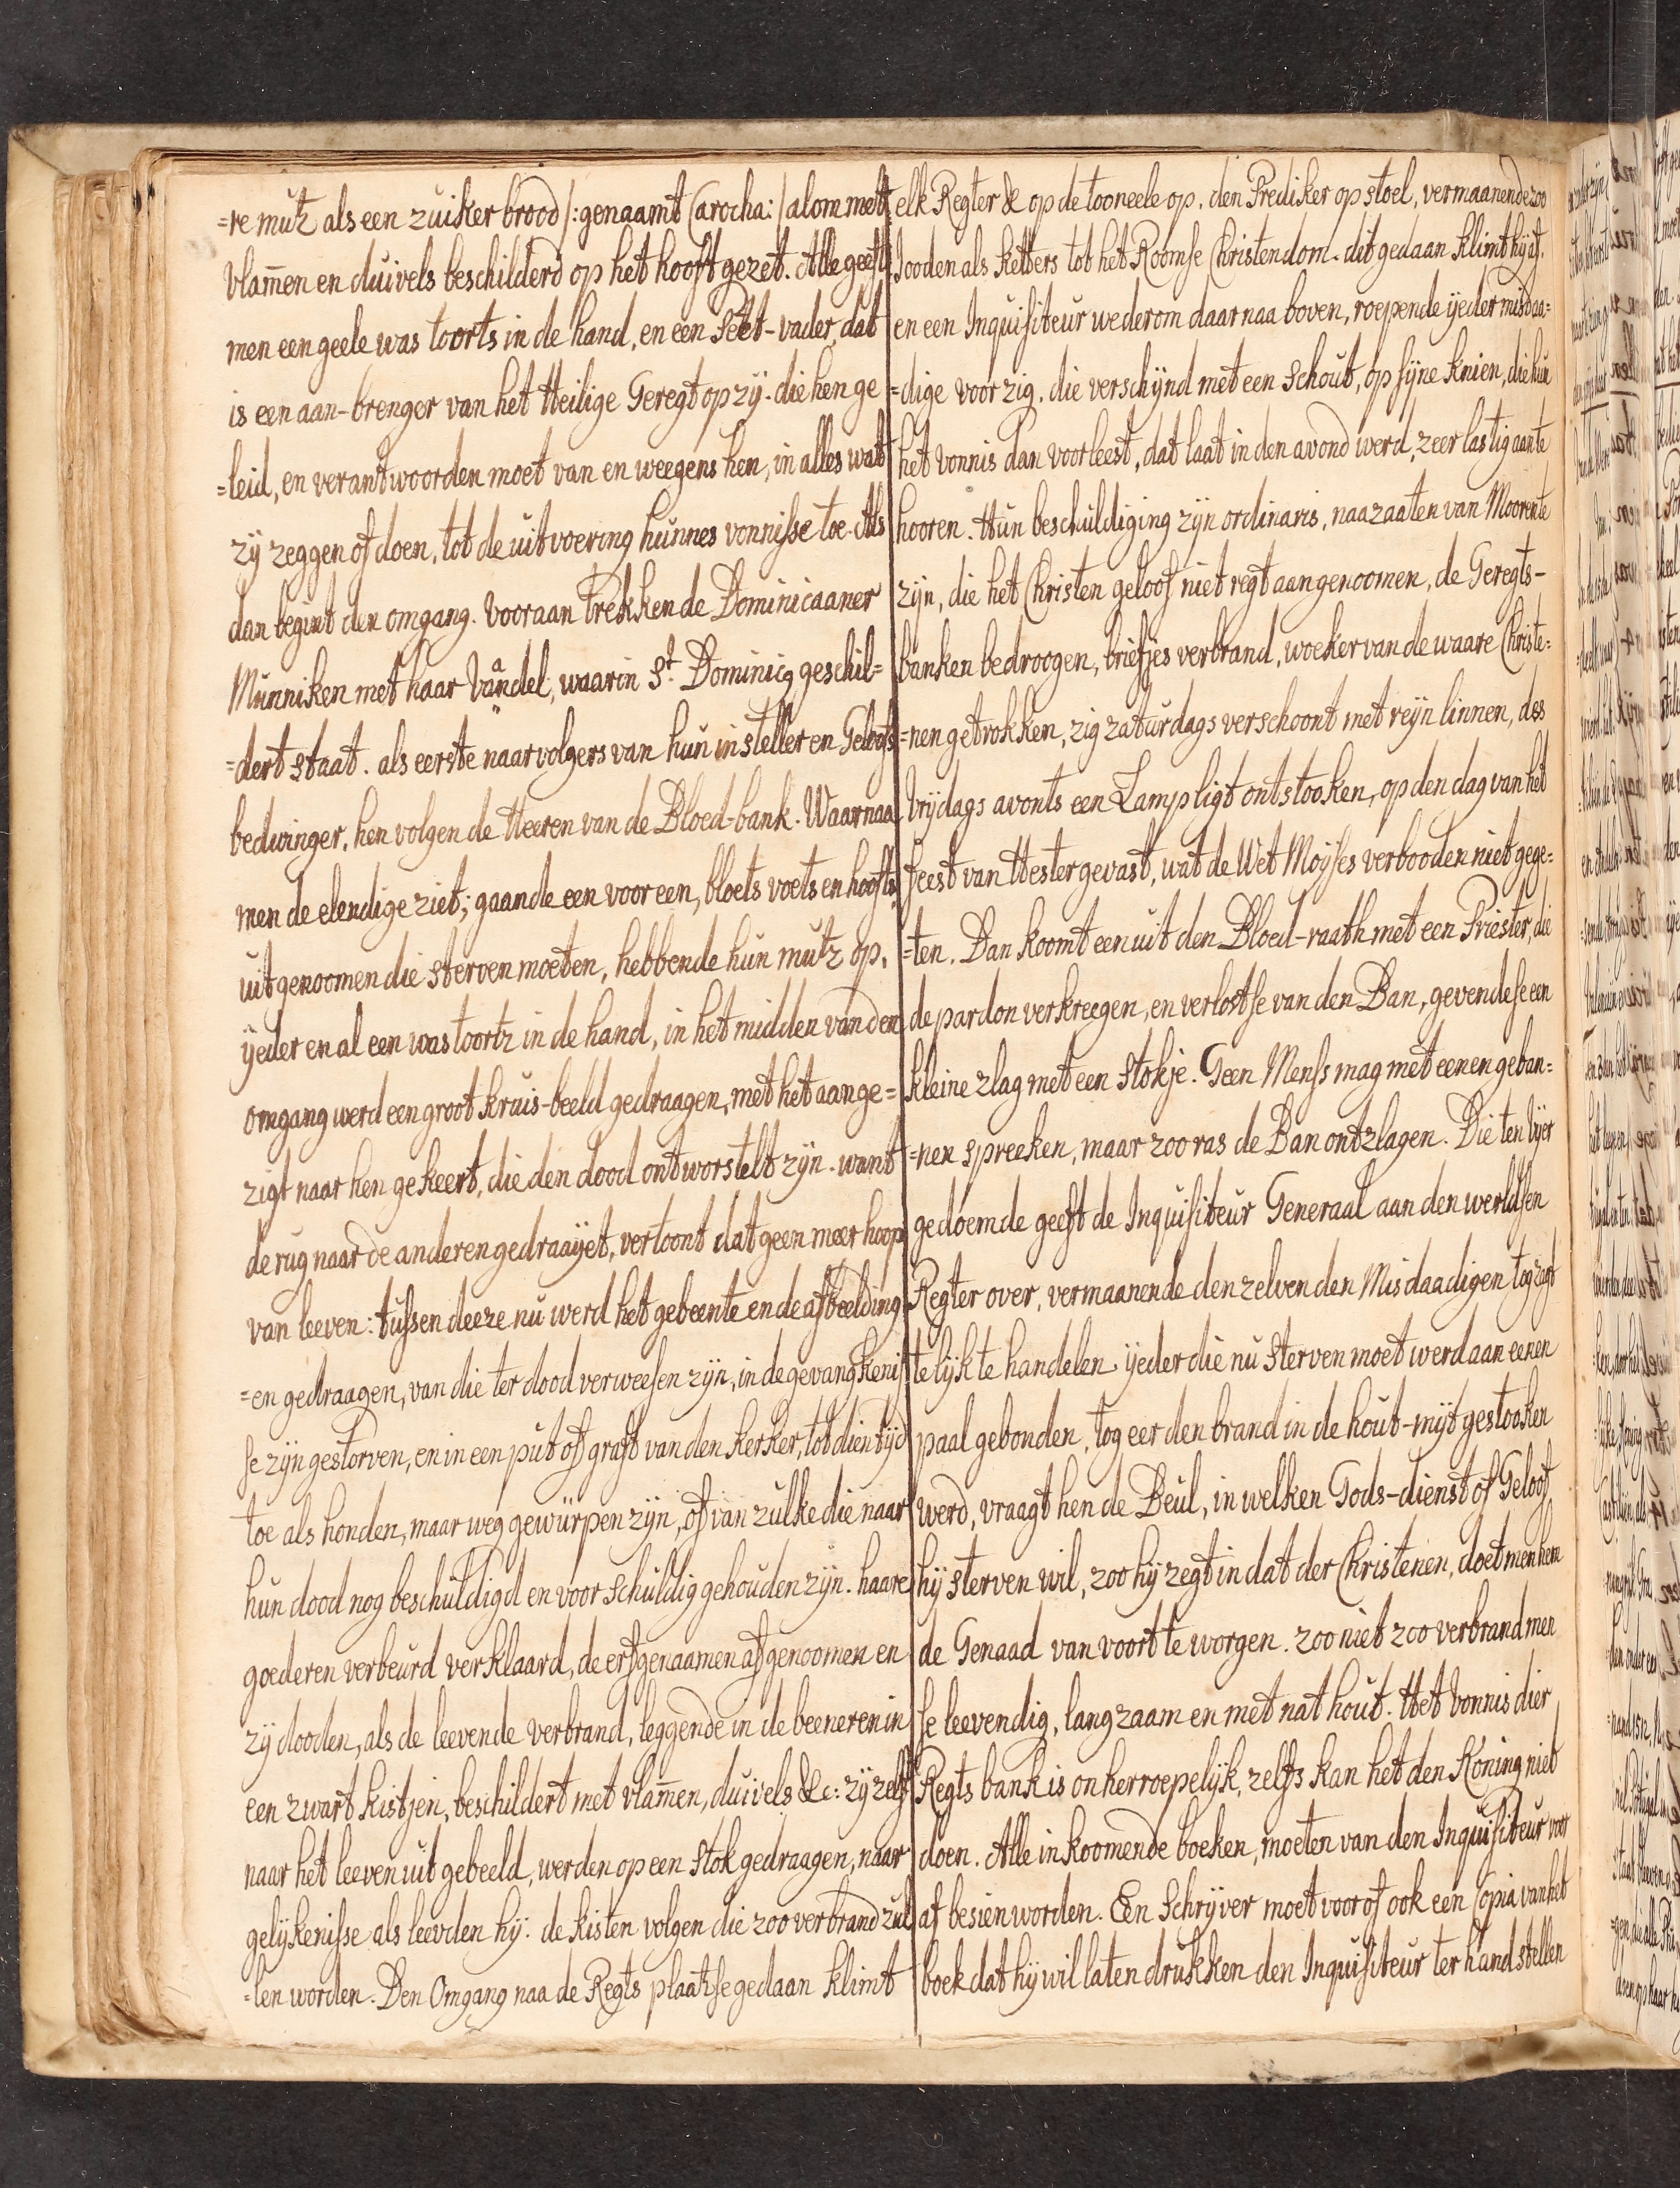 =re mutz als een zuiker brood /: genaamt Carocha: / alom mett
vlam̄en en duivels beschilderd op het hooft gezet. Alle geeft
men een geele was toorts in de hand, en een Peet-vader, dat
is een aan-brenger van het Heilige Geregt op zÿ. die hen ge
=leid, en verantwoorden moet van en weegens hen, in alles wat
zÿ zeggen of doen, tot de uitvoering hunnes vonnisse toe. Als
dan begint den omgang. Vooraan trekken de Dominicaaner
Munniken met haar Vaandel, waarin St. Dominicq geschil=
=dert staat. als eerste naarvolgers van hun insteller en Geloofs
bedwinger, hen volgen de Heeren van de Bloed-bank. Waarnaa
men de elendige ziet; gaande een voor een, bloets voets en hoofts,
uitgenoomen die sterven moeten, hebbende hun mutz op,
ÿeder en al een was toortz in de hand, in het midden van den
omgang werd een groot kruis-beeld gedraagen, met het aange=
zigt naar hen gekeert, die den dood ontworstelt zÿn. want
de rug naar de anderen gedraaÿet, vertoont dat geen meer hoop
van leeven: tussen deeze nu werd het gebeente en de afbeelding
=en gedraagen, van die ter dood verweesen zÿn, in de gevangkenis
se zÿn gestorven, en in een put of graft van den kerker, tot dien tÿd
toe als honden, maar weg gewürpen zÿn, of van zulke die naar
hun dood nog beschuldigd en voor schuldig gehouden zÿn. haare
goederen verbeurd verklaard, de erfgenaamen afgenoomen en
zÿ dooden, als de leevende verbrand, leggende in de beeneren in
een zwart kistjen, beschildert met vlam̄en, duivels &c: zÿ zelf
naar het leeven uit gebeeld, werden op een stok gedraagen, naar
gelÿkenisse als leevden hÿ. de kisten volgen die zoo verbrand zul
=len worden. Den Omgang naa de Regts plaatse gedaan klimt
elk Regter & op de tooneele op, den Prediker op stoel, vermaanende zoo
Jooden als ketters tot het Roomse Christendom. dit gedaan klimt hÿ af,
en een Inquisiteur wederom daar naa boven, roepende ÿeder misdaa=
=dige voor zig. die verschÿnd met een Schout, op sÿne knien, die hun
het vonnis dan voorleest, dat laat in den avond werd, zeer lastig aan te
hooren. Hun beschuldiging zÿn ordinaris, naazaaten van Mooren te
zÿn, die het Christen geloof niet regt aangenoomen, de Geregts-
banken bedroogen, briefjes verbrand, woeker van de waare Christe=
=nen getrokken, zig zaturdags verschoont met reÿn linnen, des
Vrÿdags avonts een Lampligt ontstooken, op den dag van het
feest van Hester gevast, wat de Wet Moÿses verbooden niet gege=
=ten. Dan koomt een uit den Bloed-raath met een Priester, die
de pardon verkreegen, en verlost se van den Ban, gevende se een
kleine zlag met een Stokje. Geen Mens mag met eenen geban=
=nen spreeken, maar zoo ras de Ban ontzlagen. Die ten Vÿer
gedoemde geeft de Inquisiteur Generaal aan den werldsen
Regter over, vermaanende denzelven den Misdaadigen tog zagt
telÿk te handelen. ÿeder die nu sterven moet werd aan eenen
paal gebonden, tog eer den brand in de hout-mÿt gestooken
werd, vraagt hen de Beul, in welken Gods-dienst of Geloof
hÿ sterven wil, zoo hÿ zegt in dat der Christenen, doet men hem
de Genaad van voort te worgen. zoo niet zoo verbrand men
se leevendig, langzaam en met nat hout. Het vonnis dier
Regts bank is onherroepelÿk, zelfs kan het den Koning niet
doen. Alle inkoomende boeken, moeten van den Inquisiteur voor
af besien worden. Een Schrÿver moet voor of ook een Copia van het
boek dat hÿ wil laten drukken den Inquisiteur ter hand stellen